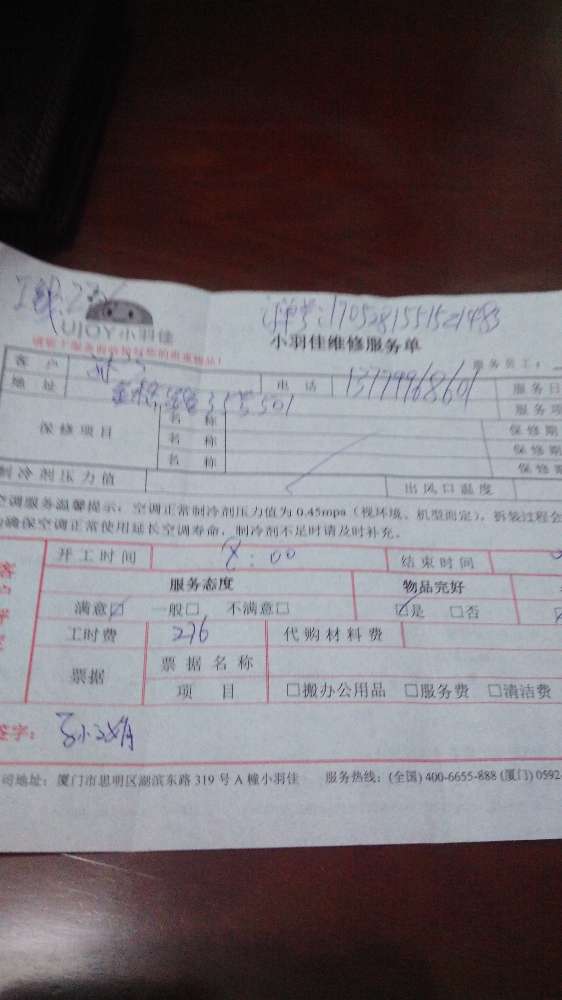 订单号:1705281551521483
UJOY小羽佳
小羽佳维修服务单
请装卡服务前请保管好您的贵重物品!
服务员工:
客 户 电 话 13779968601 服务日
地 址 服务项
保修项目 名 称 保修期
名 称 保修期
名 称 保修期
制冷剂压力值 出风口温度
空调服务温馨提示:空调正常制冷剂压力值为 0.45mpa(视环境、机型而定),拆装过程会
确保空调正常使用延长空调寿命,制冷剂不足时请及时补充。
开工时间 8:00 结束时间
服务态度 物品完好
满意☑ 一般□ 不满意□ ☑是 □否
工时费 276 代购材料费
票据 票 据 名 称
项 目 □搬办公用品 □服务费 □清洁费
签字:
司地址:厦门市思明区湖滨东路 319 号 A 幢小羽佳 服务热线:(全国) 400-6655-888 (厦门) 0592-